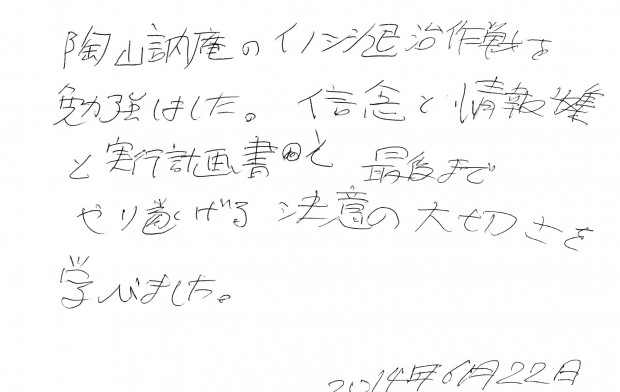 陶山訥庵のイノシシ退治作戦を
勉強しました。信念と情報収集
と実行計画書と 最後まで
やり遂げる 決意の大切さを
学びました。
2014年6月22日